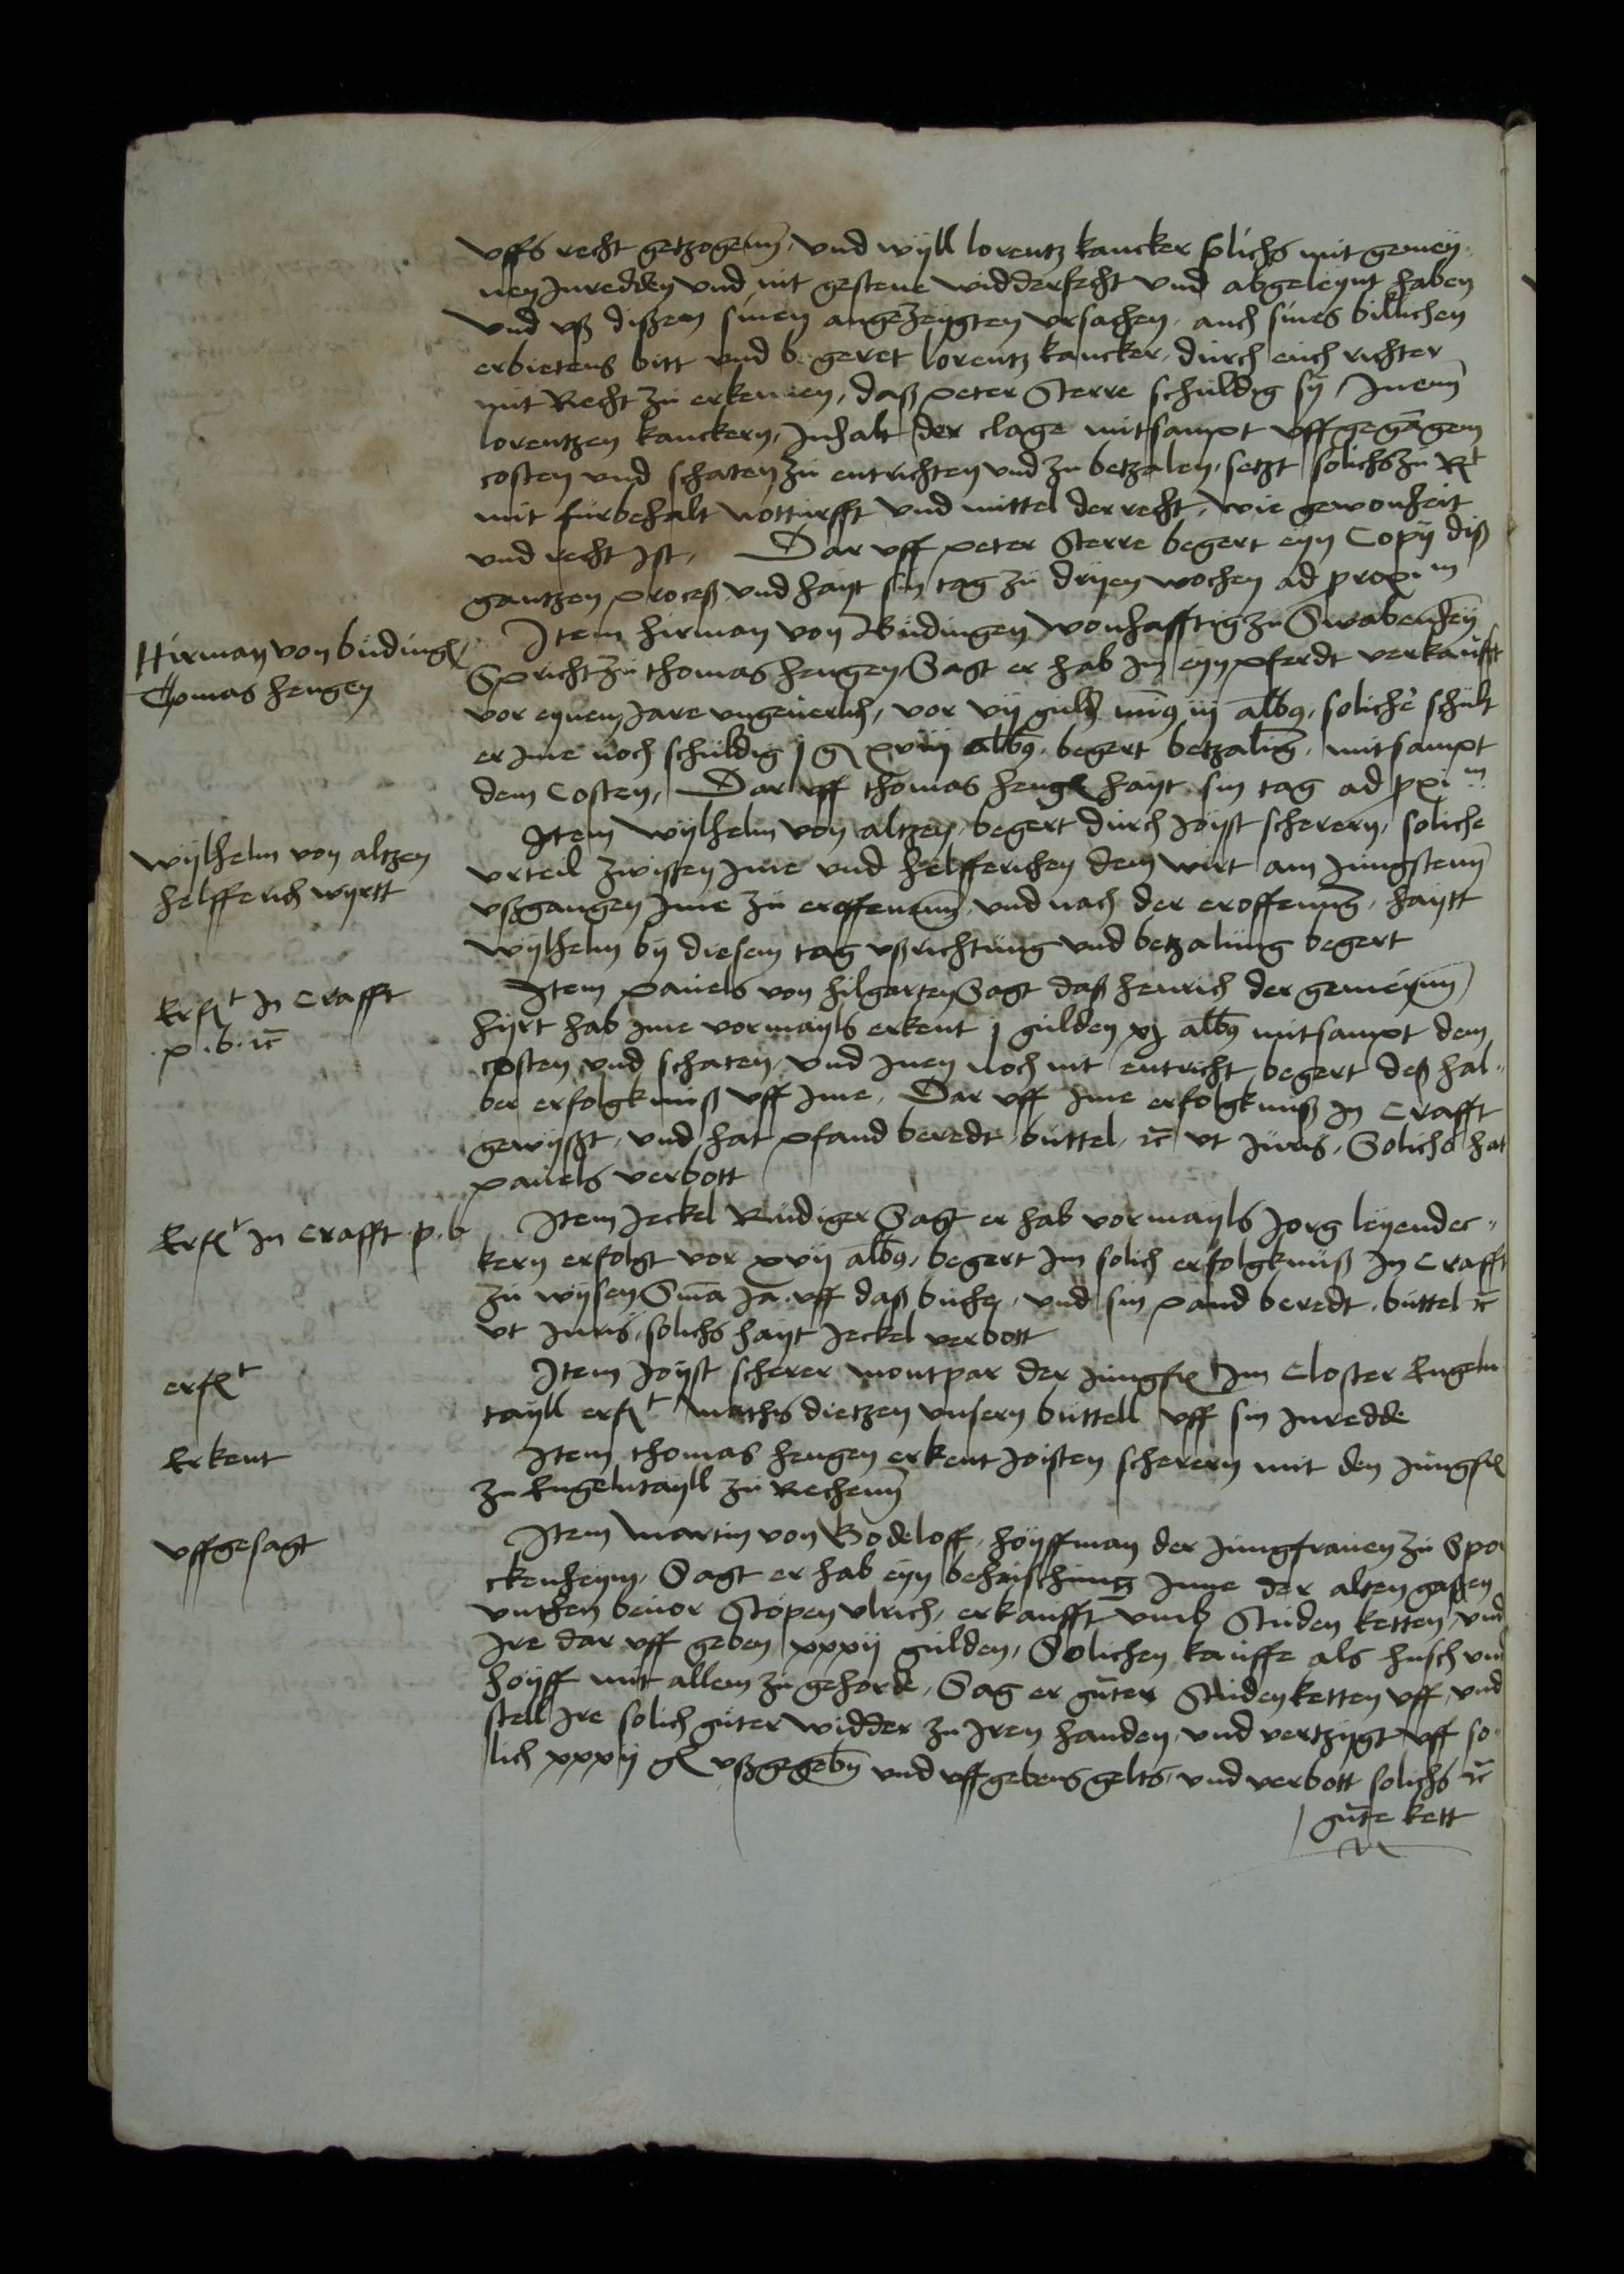 uffs recht getzogenn, und wyll lorentz kancker solichs mit gemey,
nen Inredden und nit gestene widderfecht und abgeleynt haben
Und uß dißem sinen angezeygten ursachen, auch sines billichen
erbietens bitt und begeret lorentz kancker, durch euch richter
mit Recht zu erkennen, daß peter Sterre schuldig sy Inenn
lorentzen kanckern, Inhalt der clage mitsampt uffgegāgem
costen und schaten zu entrichten und zu betzalen, setzt solichs zu Rt
mit furbehalt notturfft und mittel der recht, wie gewonheit
und recht Ist, Dar uff peter Sterre begert eyn Copy diß
gantzen proceß und hayt sin tag zu dryen wochen ad proxim
Hirman von budingen
Thomas hengen
Item hirman von Budingen wonhafftig zu Swabenheȳ
Spricht zu thomas hengen Sagt er hab Im eyn pferdt verkaufft
vor eynem Jare ungeuerlich, vor vij guld min9 iij alb9, soliche schult
er Ime noch schuldig j g xviij alb9, begert betzalung, mitsampt
dem Costen, Dar uff thomas heng hayt sin tag ad pxim
Wylhelm von altzen
helfferich wyrtt
Item Wylhelm von altzen, begert durch Joyst scherern, soliche
urteil zwissen Ime und helfferichen dem wirt am Jungstenn
ußgangen Ime zu eroffenenn, und nach der eroffenung, haytt
Wylhelm by diesem tag ußrichtung und betzalung begert
Erft In Crafft
.p.b. rc
Item pauels von hilgarten Sagt daß henrich der gemeynn
hyrt hab Ime vormayls erkent j gulden xj alb9 mitsampt dem
costen und schaten, und Inen noch nit entricht, begert deß hal,,
ber erfolgkniß uff Ime, Dar uff Ime erfolgkniß In Crafft
gewyßt, und hat pfand beredt, buttel, rc ut Juris, Solichs hat
pauels verbott
Erft In Crafft .p.b
Item Jeckel Rudiger Sagt er hab vormayls Jorg leyendec,,
kern erfolgt vor xvij alb9, begert Im solich erfolgknuß In Crafft
zu wysen Sma Ja uff daß buche, und sin pand beredt, buttel rc
ut Juris, solichs hayt Jeckel verbott
erft
Item Joyst scherer montpar der Jungfr Im Closter Engeln
tayll erft mathis dietzen unsern buttell uff sin Inredde
Erkent
Item thomas hengen erkent Joisten scherern mit den Jungfr
zu Engelntayll zu Rechenn
uffgesagt
Item Martin von Bodeloff, hoyffman der Jungfrauen zu Spo
ckenheym, Sagt er hab eyn behusching Inne der alten gaßen
unthen beuor Stopen Ulrich, erkaufft umb Studen ketten, und
Ire dar uff geben xxxij gulden, Solichen kauffe als husch und
hoyff mit allem zu gehorde, Sag er guter Studen ketten uff, und
stell Ire solich guter widder zu Iren handen, und vertzygt uff so,,
lich xxxij gl ußgegebn und uffgebens gelts, und verbott solichs rc
gute kett